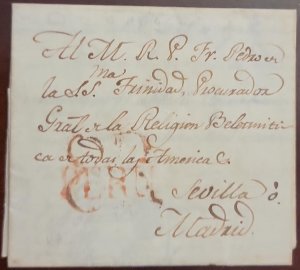 Al M. R. P. Fr. Pedro de
la SS.ma Trinidad, Procurador
Gral de la Religion Belemiti
ca de todas las America &.
Sevilla ó
Madrid.
PERU